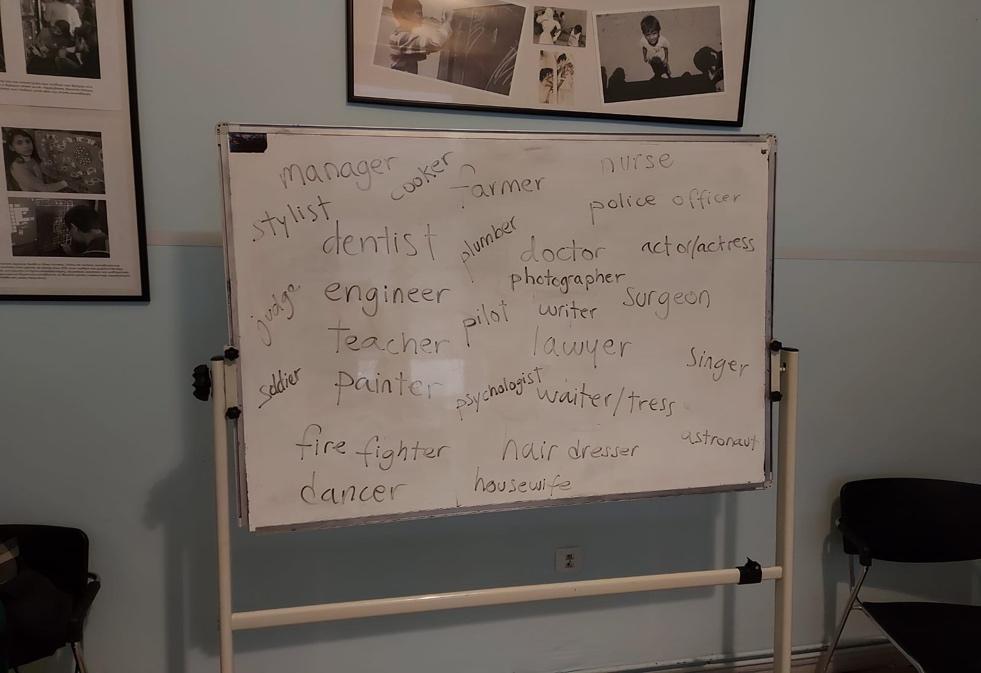 manager
cooker
farmer
nurse
stylist
police officer
dentist
plumber
doctor
actor/actress
photographer
judge
engineer
pilot
writer
surgeon
teacher
lawyer
singer
soldier
painter
psychologist
waiter/tress
fire fighter
hair dresser
astronaut
dancer
housewife